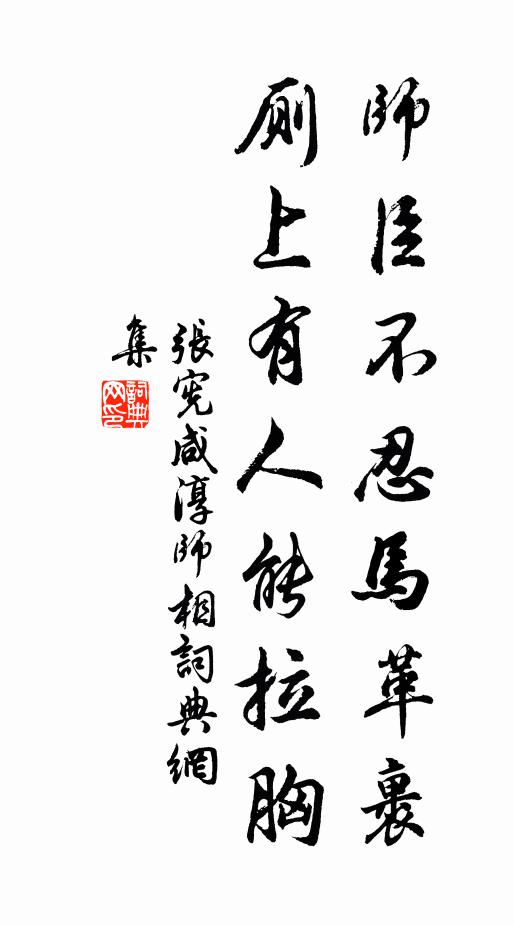 師臣不忍馬革裹
厠上有人能拉胸
張憲咸淳師相詞典網
集
詞典
网印